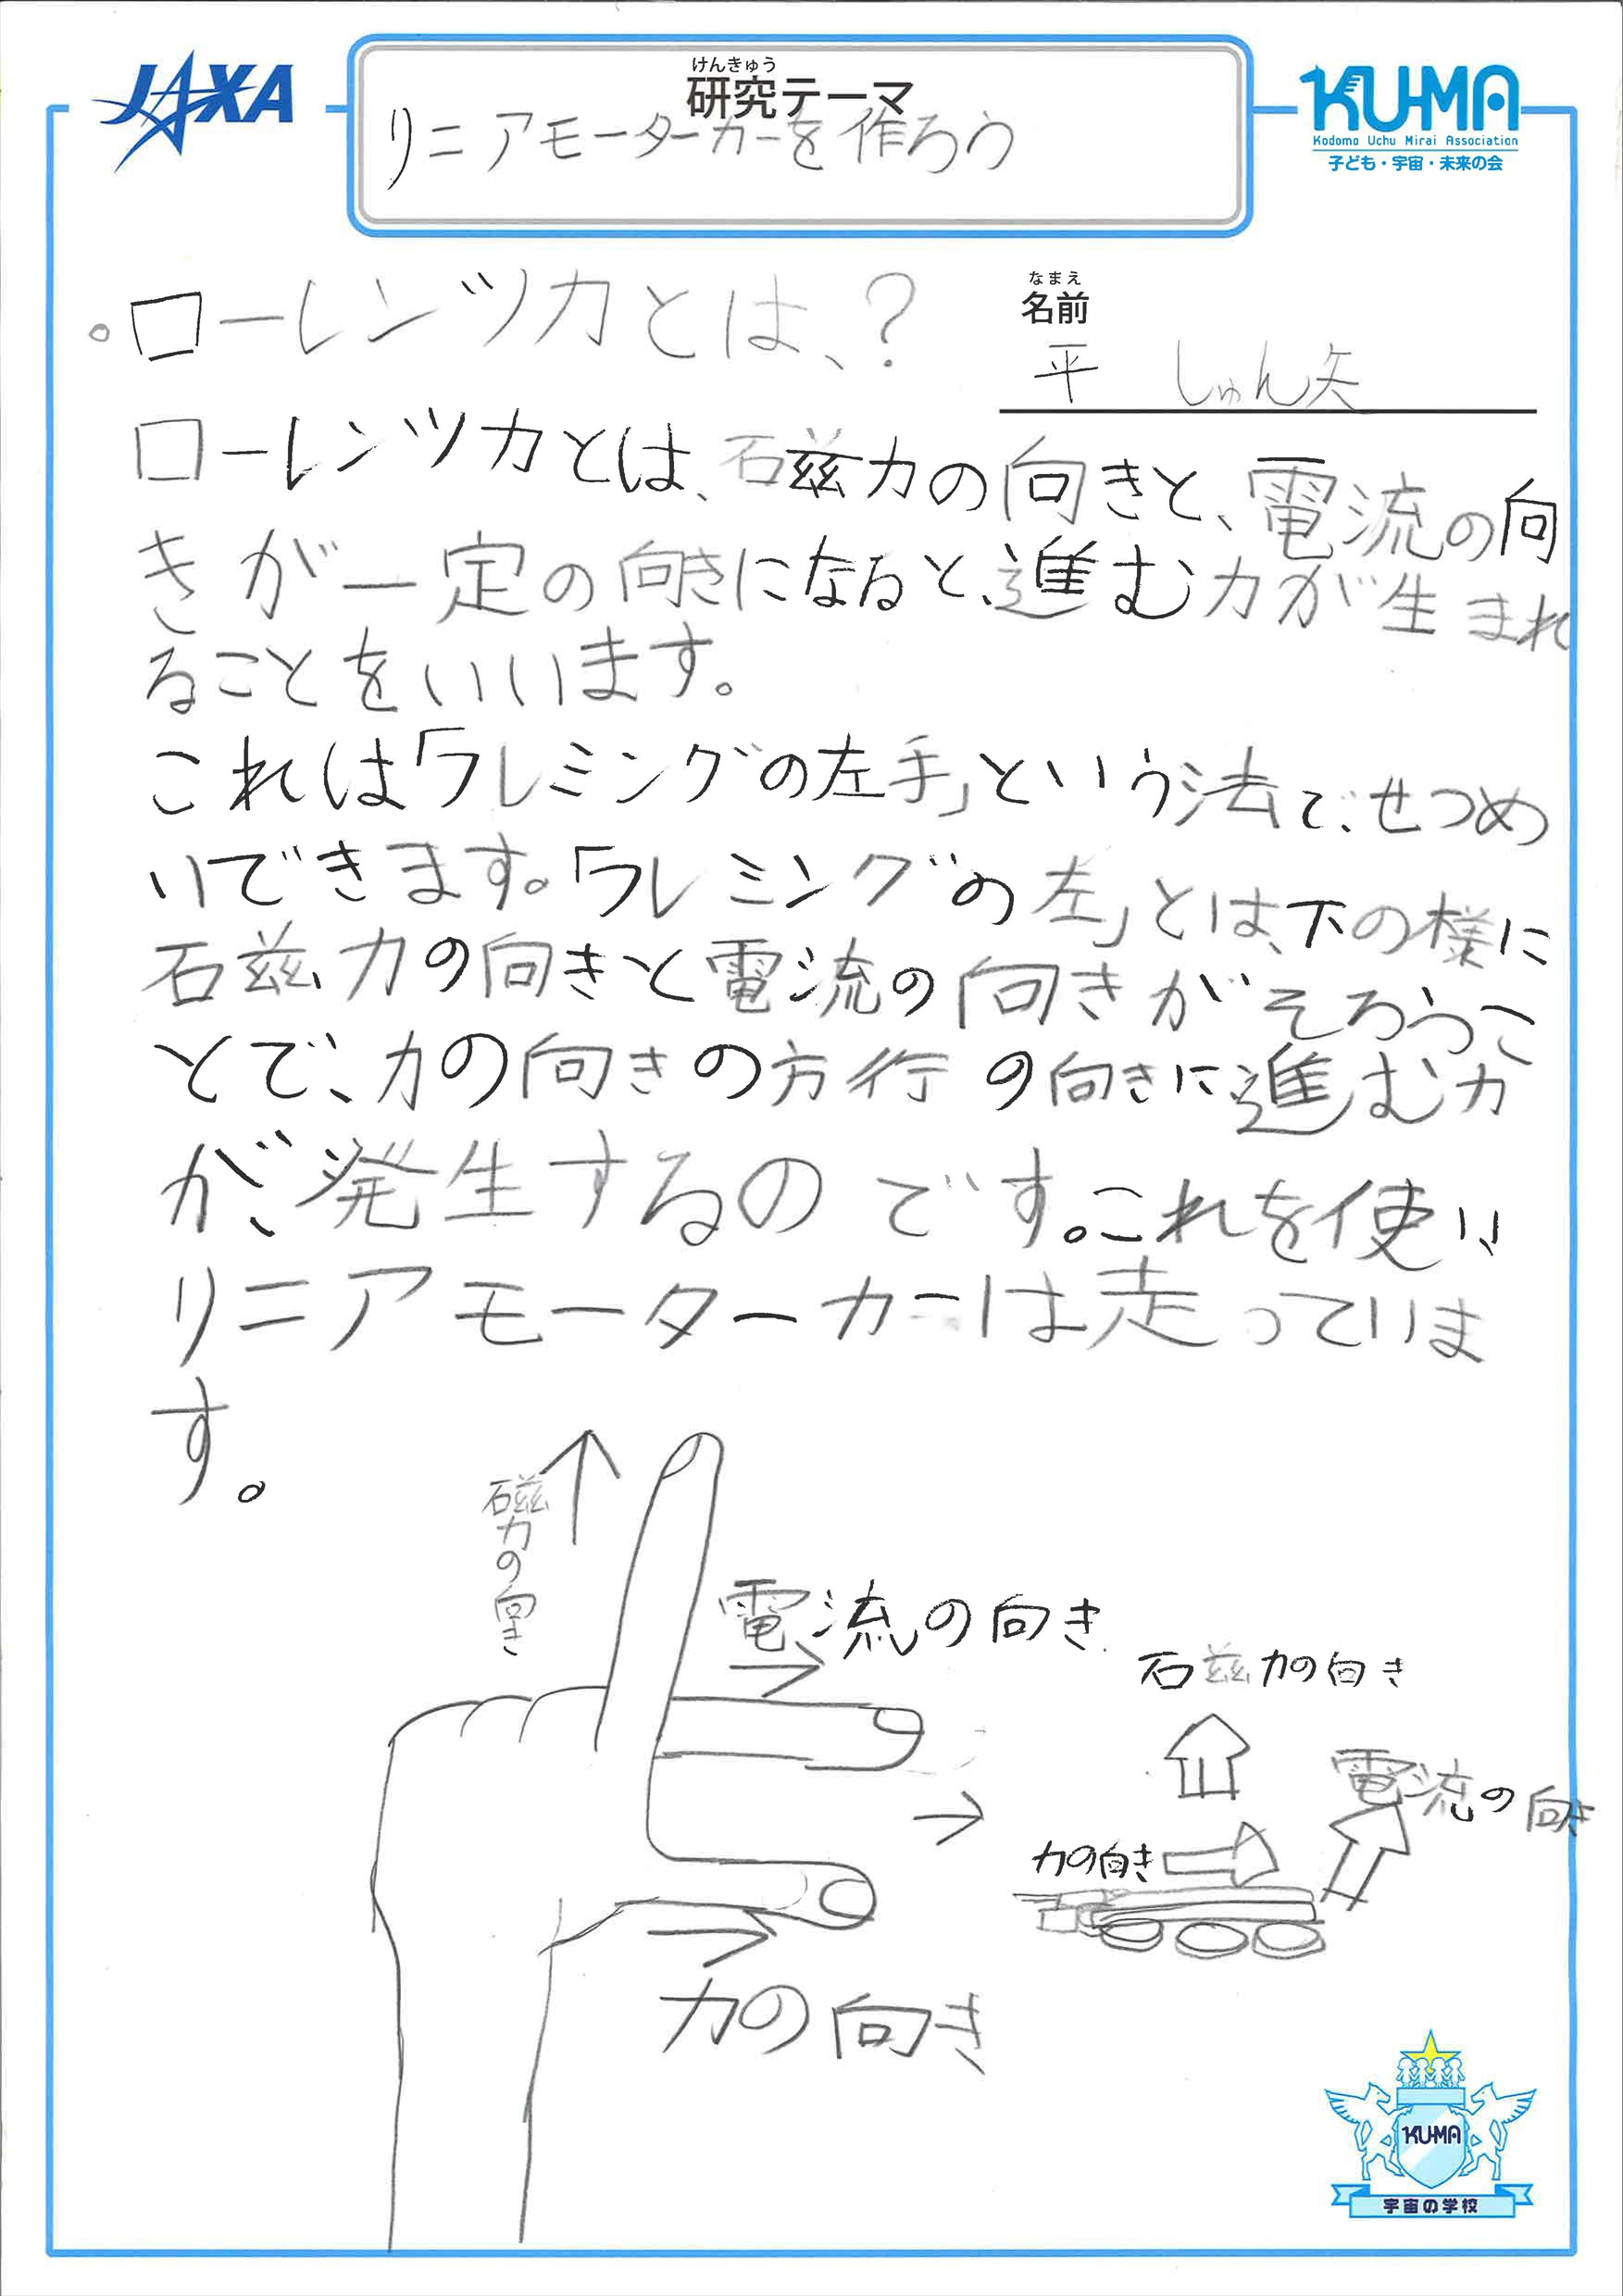 JAXA
けんきゅう
研究テーマ
リニアモーターカーを作ろう
KU-MA
Kodomo Uchu Mirai Association
子ども・宇宙・未来の会
。ローレンツ力とは、?
なまえ
名前
平 しゅん矢
ローレンツ力とは、磁力の向きと、電流の向
きが一定の向きになると、進む力が生まれ
ることをいいます。
これは「フレミングの左手」という法で、せつめ
いできます。「フレミングの左」とは、下の様に
磁力の向きと電流の向きがそろうこ
とで、力の向きの方行の向きに進む力
が、発生するのです。これを使い、
リニアモーターカーは走っていま
す。
磁力の向き
電流の向き
磁力の向き
電流の向き
力の向き
力の向き
KU-MA
宇宙の学校